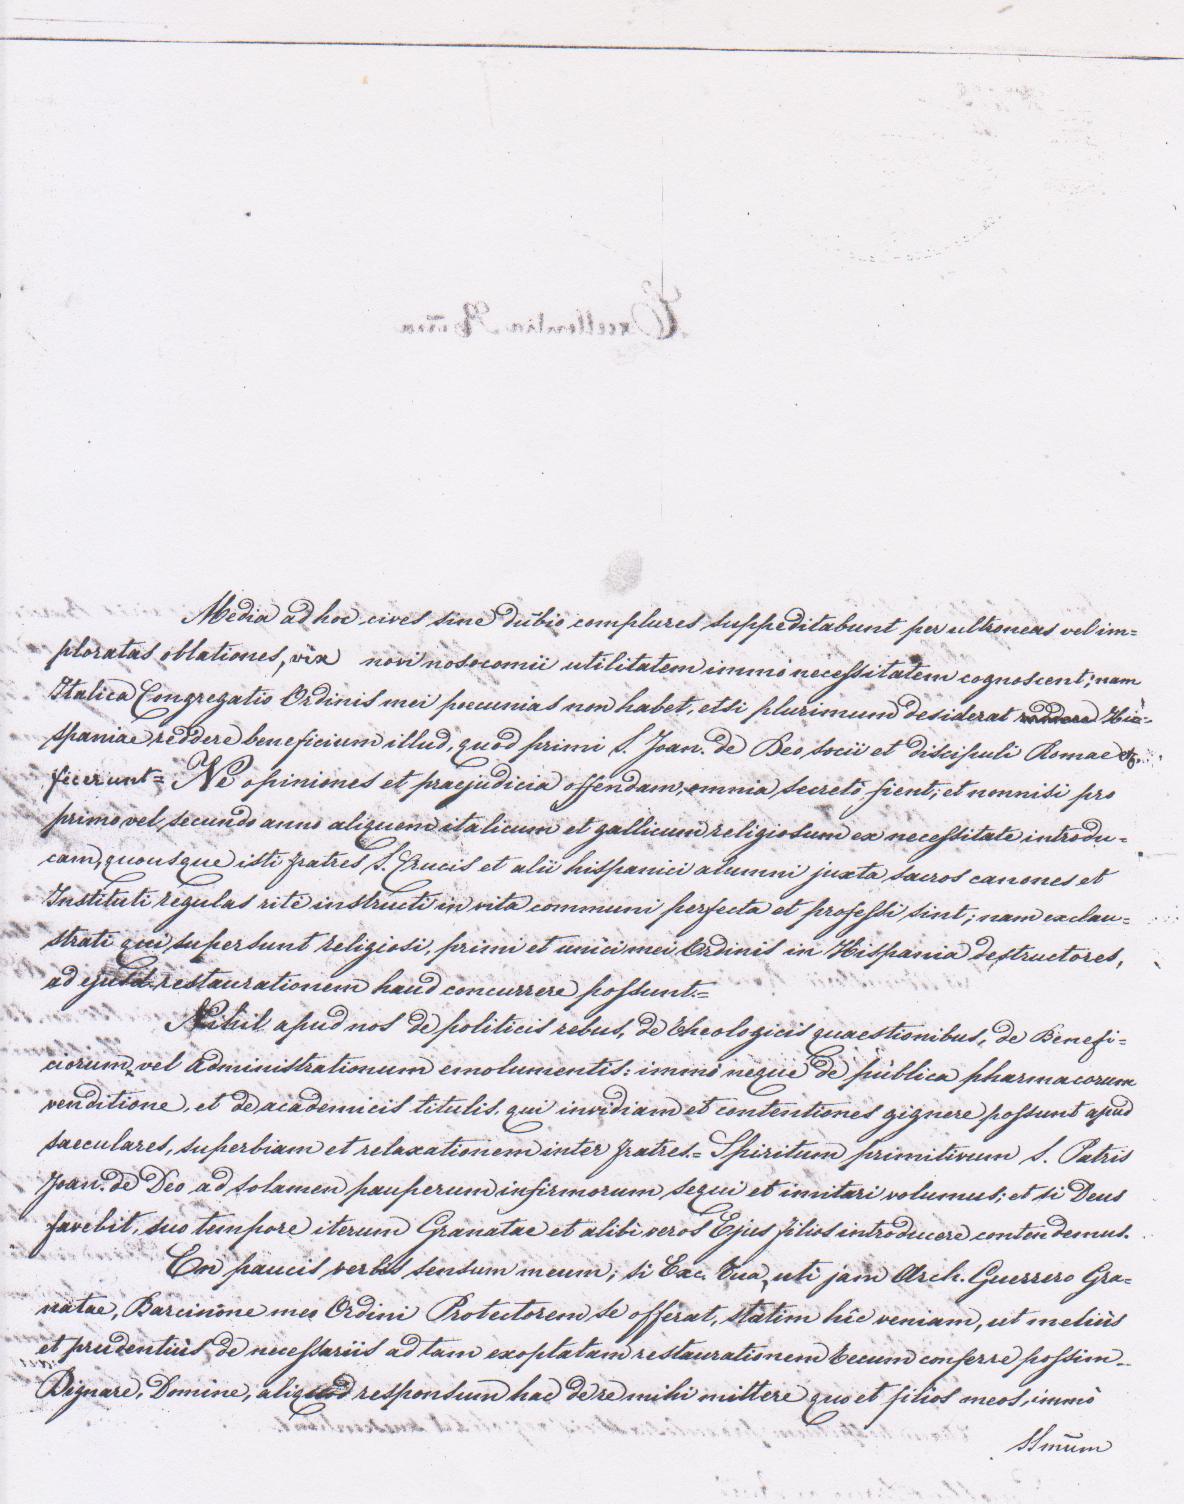 Excellentia Rma
Media ad hoc cives sine dubio complures suppeditabunt per ultroneas vel im=
ploratas oblationes, vix novi nosocomii utilitatem immò necessitatem cognoscent; nam
Italica Congregatio Ordinis mei pecunias non habet, etsi plurimum desiderat reddere Hi=
spaniae reddere beneficium illud, quod primi S. Joan. de Deo socii et discipuli Romae etc.
fecerunt= Ne opiniones et praejudicia offendam, omnia secretò fient; et nonnisi pro
primo vel secundo anno aliquem italicum et gallicum religiosum ex necessitate introdu=
cam, quousque isti fratres S. Crucis et alii hispanici alumni juxta sacros canones et
Instituti regulas ritè instructi in vita communi perfecta et professi sint; nam exclau=
strati qui supersunt religiosi, primi et unici mei Ordinis in Hispania destructores,
ad ejusd. restaurationem haud concurrere possunt.=
Nihil apud nos de politicis rebus, de theologicis quaestionibus, de Benefi=
ciorum vel administrationum emolumentis: immò neque de publica pharmacorum
venditione, et de academicis titulis, qui invidiam et contentiones gignere possunt apud
saeculares, superbiam et relaxationem inter fratres.= Spiritum primitivum S. Patris
Joan. de Deo ad solamen pauperum infirmorum sequi et imitari volumus; et si Deus
favebit, suo tempore iterum Granatae et alibi veros Ejus filios introducere contendemus.
En paucis verbis sensum meum; si Exc. Tua, uti jam Arch. Guerrero Gra=
natae, Barcinone meo Ordini Protectorem se offerat, statim hîc veniam, ut meliùs
et prudentiùs de necessariis ad tam exoptatam restaurationem tecum conferre possim.
Dignare, Domine, aliquod responsum hac de re mihi mittere quo et filios meos, immò
SSmum